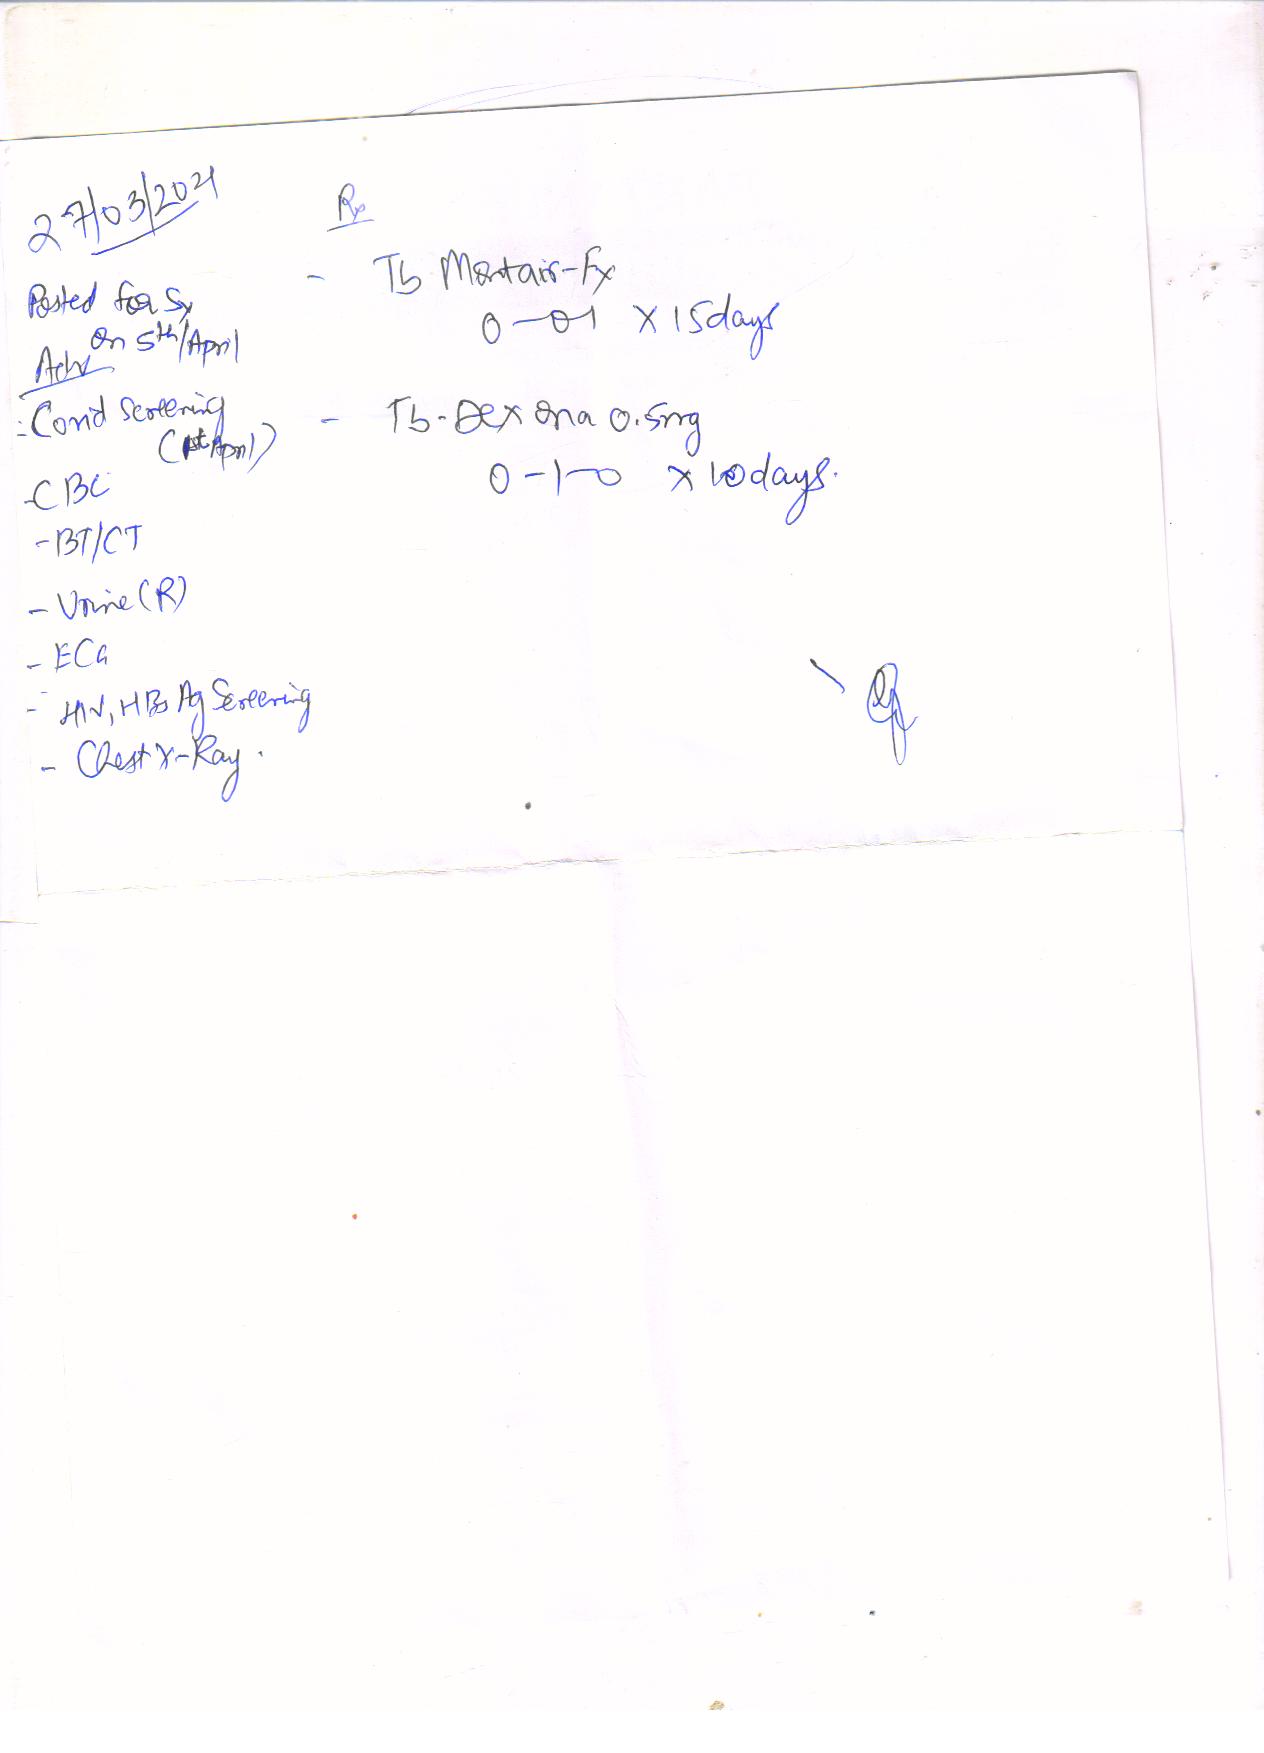 27/03/2021
Posted for Sx
on 5th/April
Adv
- Covid Screening
(1st April)
- CBC
- BT/CT
- Urine (R)
- ECG
- HIV, HBsAg Screening
- Chest X-Ray.
Rx
- Tb Montair-Fx
0-01 X 15days
- Tb-Dexona 0.5mg
0-1-0 X 10days.